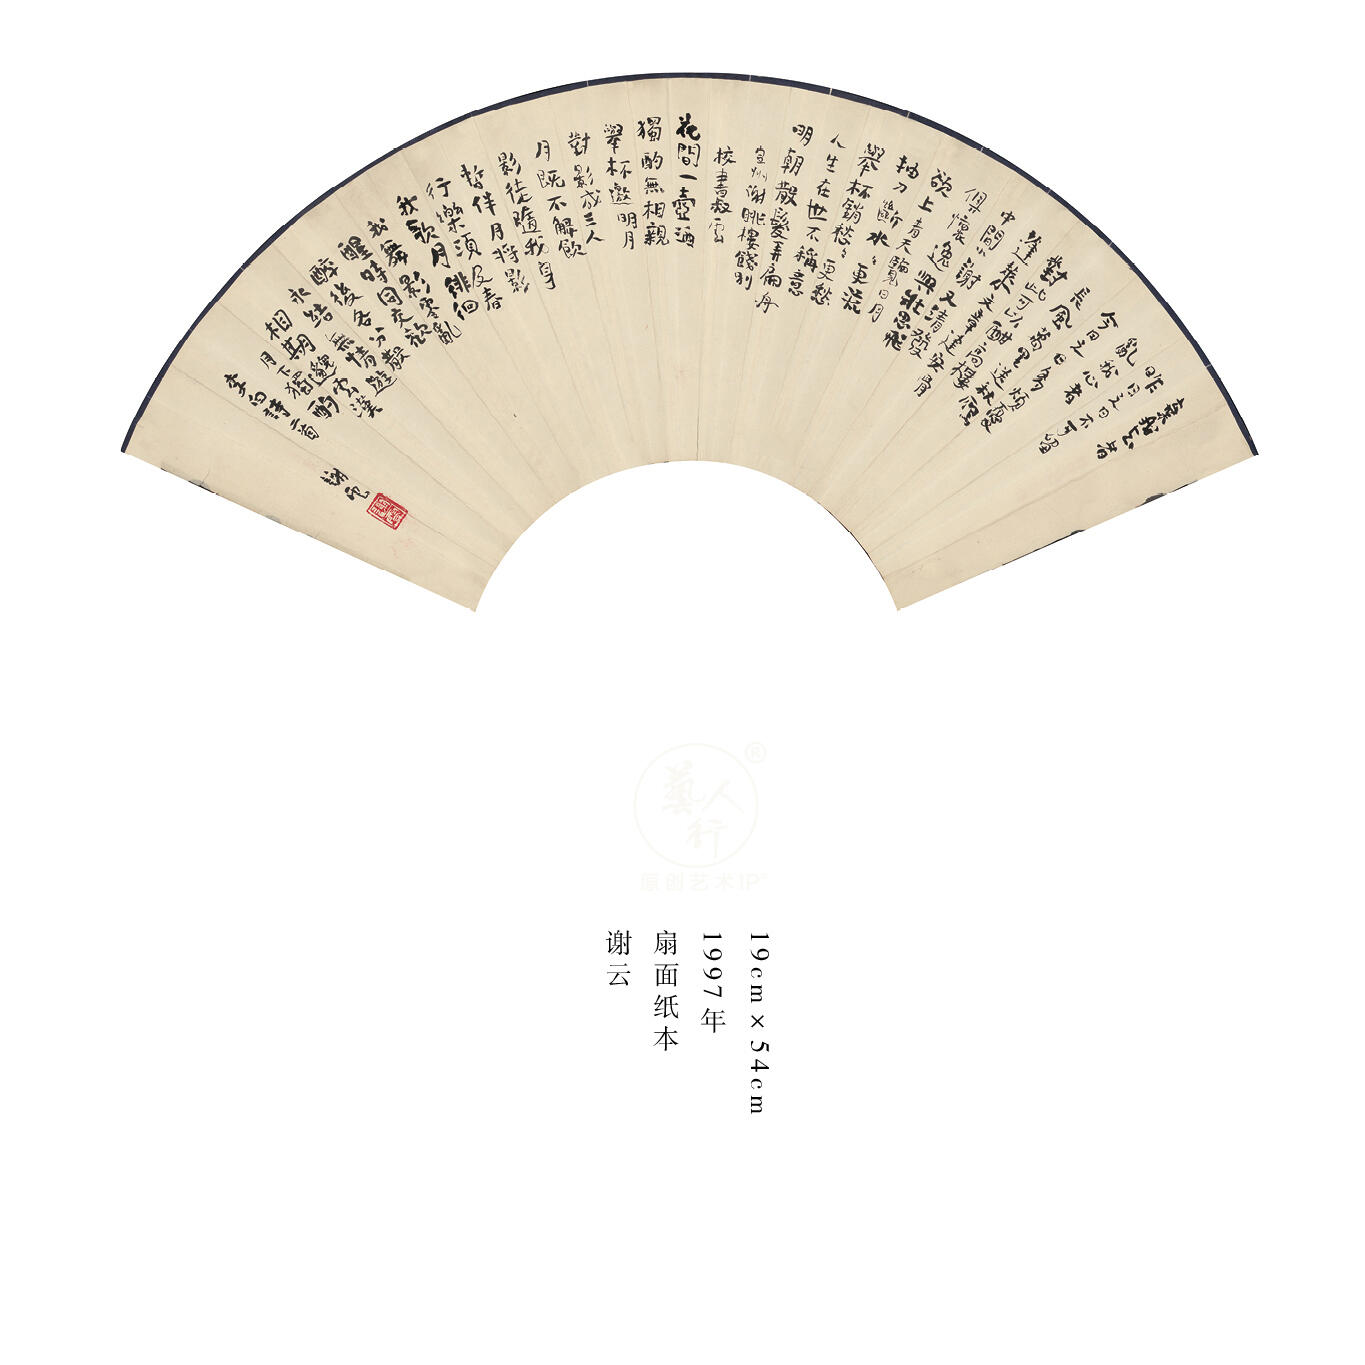 棄我去者
昨日之日不可留
亂我心者
今日之日多煩憂
長風萬里送秋雁
對此可以酣高樓
蓬萊文章建安骨
中間小謝又清發
俱懷逸興壯思飛
欲上青天覽日月
抽刀斷水々更流
舉杯銷愁々更愁
人生在世不稱意
明朝散髮弄扁舟
宣州謝朓樓餞別
校書叔云
花間一壺酒
獨酌無相親
舉杯邀明月
對影成三人
月既不解飲
影徒隨我身
暫伴月將影
行樂須及春
我歌月徘徊
我舞影零亂
醒時同交歡
醉後各分散
永結無情遊
相期邈云漢
月下獨酌
李白詩二首
謝云
藝人行®
原创艺术IP
19cm×54cm
1997年
扇面纸本
谢云